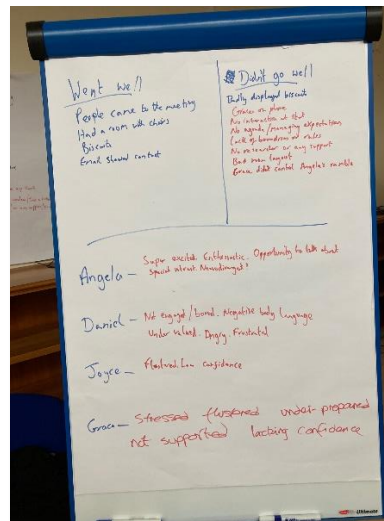 Went well
People came to the meeting
Had a room with chairs
Biscuits
Email shared contact
Didn't go well
Badly displayed biscuits
Grace on phone
No interaction at start
No agenda/managing expectations
Lack of boundaries or rules
No researcher or any support
Bad room layout
Grace didn't control Angela's ramble
Angela – Super excited. Enthusiastic. Opportunity to talk about
special interest.
Daniel – Not engaged/bored. Negative body language
Under valued. Angry. Frustrated
Joyce – Flustered. Low confidence
Grace – Stressed flustered under-prepared
not supported lacking confidence
Ultimate